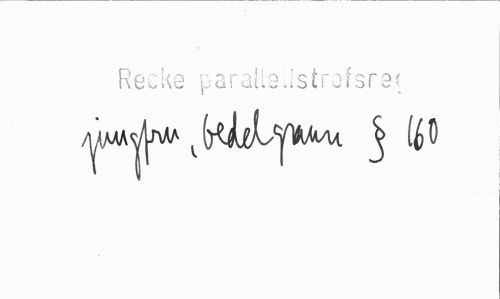 Recke parallellstrofsreg
jungfru, bedelgraun § 160